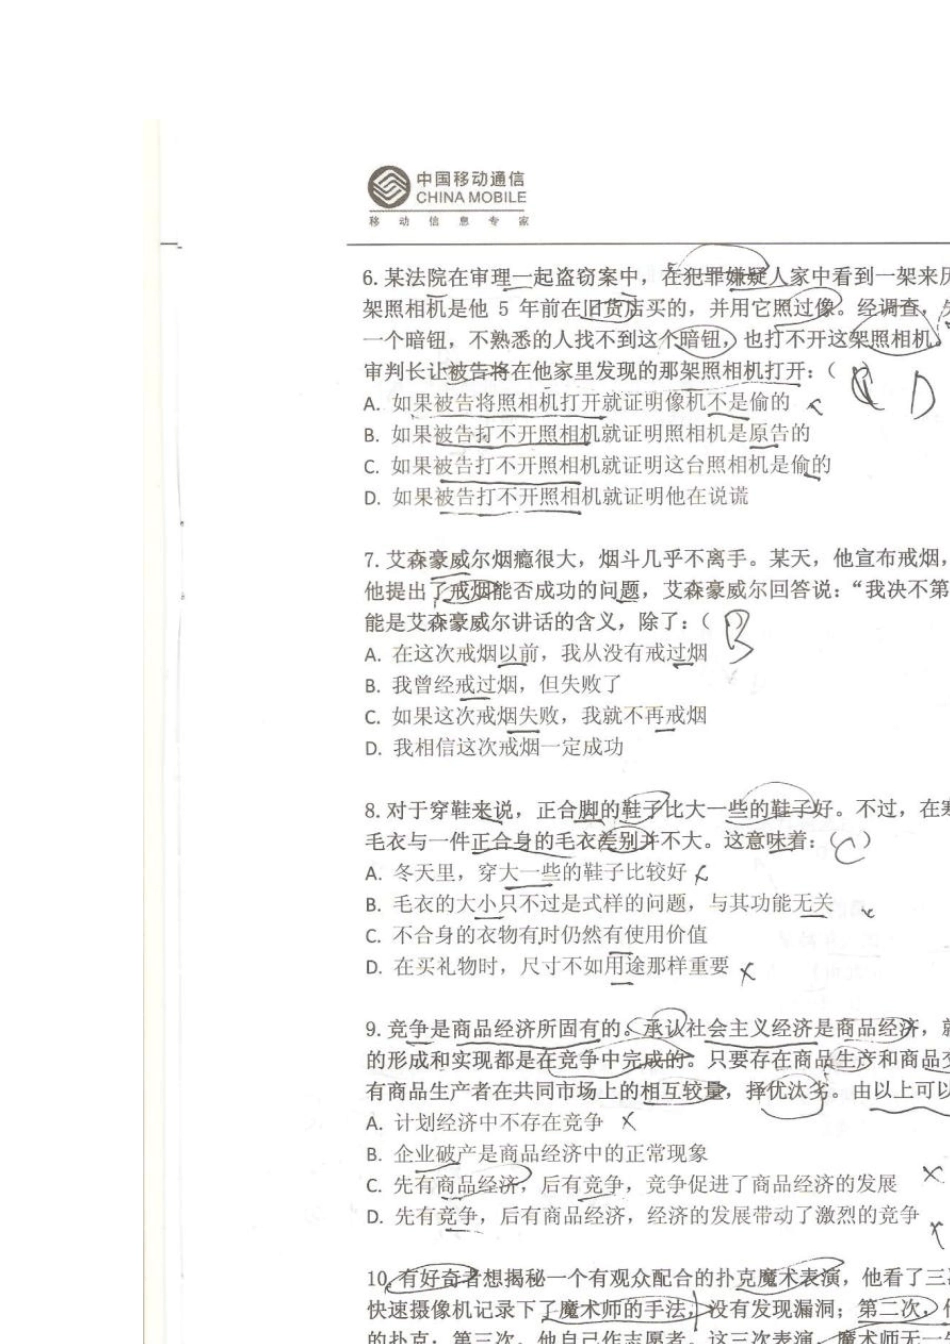 中国移动通信
CHINA MOBILE
移动信息专家
6. 某法院在审理一起盗窃案中，在犯罪嫌疑人家中看到一架来历
架照相机是他 5 年前在旧货店买的，并用它照过像。经调查，
一个暗钮，不熟悉的人找不到这个暗钮，也打不开这架照相机。
审判长让被告将在他家里发现的那架照相机打开：（ D
A. 如果被告将照相机打开就证明像机不是偷的
B. 如果被告打不开照相机就证明照相机是原告的
C. 如果被告打不开照相机就证明这台照相机是偷的
D. 如果被告打不开照相机就证明他在说谎
7. 艾森豪威尔烟瘾很大，烟斗几乎不离手。某天，他宣布戒烟，
他提出了戒烟能否成功的问题，艾森豪威尔回答说：“我决不第
能是艾森豪威尔讲话的含义，除了：（ B
A. 在这次戒烟以前，我从没有戒过烟
B. 我曾经戒过烟，但失败了
C. 如果这次戒烟失败，我就不再戒烟
D. 我相信这次戒烟一定成功
8. 对于穿鞋来说，正合脚的鞋子比大一些的鞋子好。不过，在寒
毛衣与一件正合身的毛衣差别并不大。这意味着：（C）
A. 冬天里，穿大一些的鞋子比较好
B. 毛衣的大小只不过是式样的问题，与其功能无关
C. 不合身的衣物有时仍然有使用价值
D. 在买礼物时，尺寸不如用途那样重要
9. 竞争是商品经济所固有的。承认社会主义经济是商品经济，就
的形成和实现都是在竞争中完成的。只要存在商品生产和商品交
有商品生产者在共同市场上的相互较量，择优汰劣。由以上可以
A. 计划经济中不存在竞争
B. 企业破产是商品经济中的正常现象
C. 先有商品经济，后有竞争，竞争促进了商品经济的发展
D. 先有竞争，后有商品经济，经济的发展带动了激烈的竞争
10. 有好奇者想揭秘一个有观众配合的扑克魔术表演，他看了三
快速摄像机记录下了魔术师的手法，没有发现漏洞；第二次，
的扑克；第三次，他自己作志愿者。这三次表演，魔术师无一